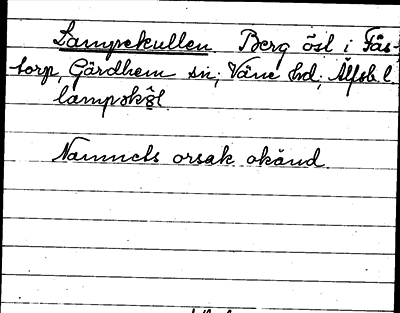 Lampekullen Berg östl i Fås-
torp, Gärdhem sn; Väne hd; Älfsb. l.
lampskôl
Namnets orsak okänd